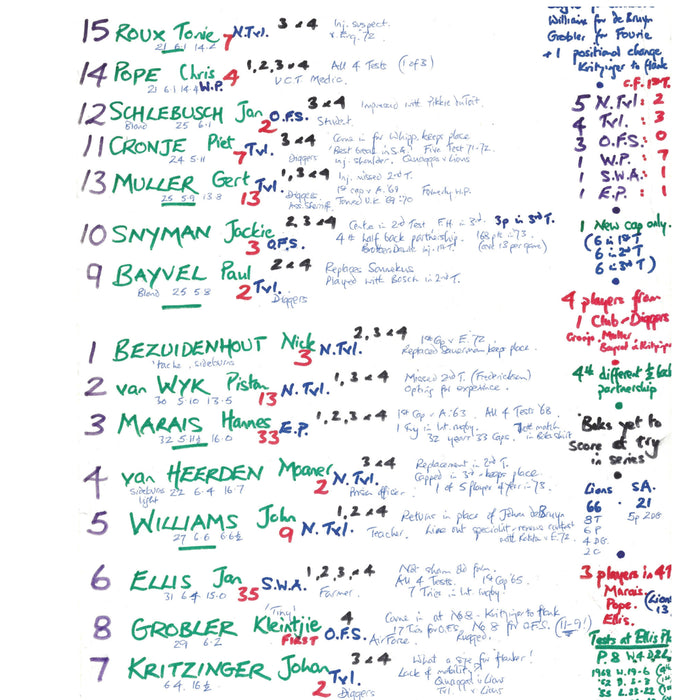 15 ROUX Tonie 7 N.Tvl. 3 & 4 Inj. suspect.
21 6.1 14.2 v. Eng. '72
14 POPE Chris 4 W.P. 1, 2, 3 & 4 All 4 Tests (1 of 3)
21 6.1 14.4 U.C.T. Medic.
12 SCHLEBUSCH Jan 2 O.F.S. 3 & 4 Impressed with Pikkie
Blond 25 6.1 Student.
11 CRONJE Piet 7 Tvl. 3 & 4 Came in for Whipp. keeps place
24 5.11 Diggers 'Best Centre in S.A.' Five Test 71-72.
Inj. shoulder. Quaggas v Lions
13 MULLER Gert 13 Tvl. 1, 3 & 4 Inj. missed 2nd T.
25 5.9 13.8 Diggers 1st cap v A. '69 Formerly W.P.
Toured U.K. 69:70
10 SNYMAN Jackie 3 O.F.S. 2, 3 & 4 Centre in 2nd Test F.H. in 3rd. 3p in 3rd T.
4th half back partnership. 168 pts in 73.
9 BAYVEL Paul 2 Tvl. 3 & 4 Replaces Sonnekus
Blond 25 5.8 Diggers Played with Bosch in 2nd T.
1 BEZUIDENHOUT Nick 3 N.Tvl. 2, 3 & 4 1st Cap v E. '72
'tache, sideburns Replaced Sauerman keeps place.
2 van WYK Piston 13 N.Tvl. 1, 3 & 4 Missed 2nd T. (Fredrickson)
30 5.10 13.5 Opting for experience.
3 MARAIS Hannes 33 E.P. 1, 2, 3 & 4 1st Cap v A. '63. All 4 Tests '68.
32 5.11½ 16.0 1 Try in Int. rugby.
32 years 33 Caps.
4 van HEERDEN Moaner 2 N.Tvl. 3 & 4 Replacement in 2nd T.
sideburns 22 6.4 16.7 Capped in 3rd - keeps place.
light Prison officer. 1 of 5 Player of Year in 73.
5 WILLIAMS John 9 N.Tvl. 1, 2 & 4 Returns in place of Johan deBruyn
27 6.6 Teacher. Line out specialist
6 ELLIS Jan 35 S.W.A. 1, 2, 3, & 4 Not shown the form.
31 6.4 15.0 Farmer. All 4 Tests. 1st Cap '65.
7 Tries in Int. rugby!
'Tiny'
8 GROBLER Kleintjie FIRST O.F.S. 4 Came in at No 8 - Kritzinger to flank
29 6.2 Air Force. 17 Tries for O.F.S. No 8 for O.F.S. (11-9!)
7 KRITZINGER Johan 2 Tvl. 3 & 4 What a size for flanker!
6.4 16½ Diggers Lack of mobility?
Quaggas v Lions
Tvl. v Lions
Williams for de Bruyn
Grobler for Fourie
+ 1 positional change
Kritzinger to flank
C.F. 1st T.
5 N.Tvl: 2
4 Tvl. : 3
3 O.F.S: 0
1 W.P. : 7
1 S.W.A.: 1
1 E.P. : 1
1 New cap only.
(6 in 1st T
6 in 2nd T
6 in 3rd T)
4 players from
1 Club - Diggers
Cronje, Muller
Bayvel & Kritzinger
4th different ½ back
partnership
'Boks yet to
score a try
in series
Lions SA.
66 21
8T 5p 2DG.
6P
4DG.
2C
3 players in all
Marais
Pope. (Lions
Ellis. 13.
Tests at Ellis Pk
P. 8 W 4 D2 L2